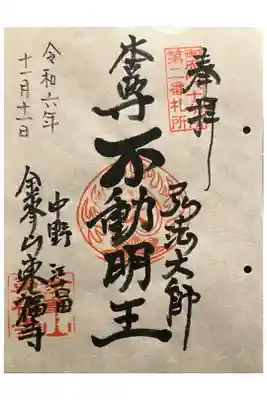 奉拝
第二番札所
弘法大師
本尊不動明王
令和六年
十一月十一日
中野 江古田
金峯山東福寺